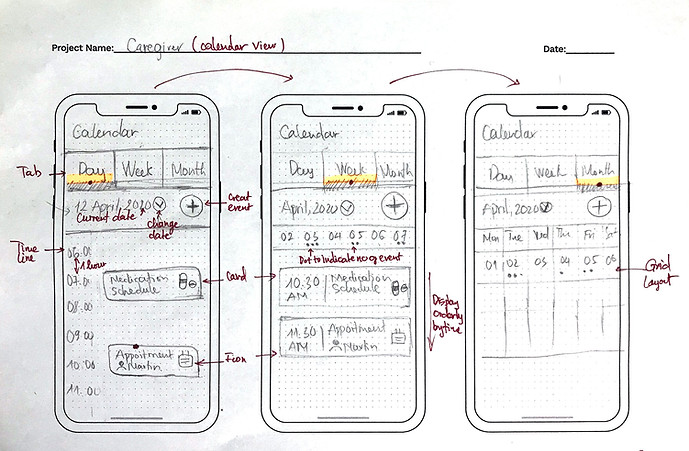 Project Name: Caregiver (calendar view)
Date:
Calendar
Day Week Month
12 April, 2020
06:00
07:00
Medication
Schedule
08:00
09:00
10:00
Appoitment
Martin
11:00
Tab
Current date
change
date
Creat
event
Time
line
1 hour
Card
Icon
Calendar
Day Week Month
April, 2020
02 03 04 05 06 07
Dot to indicate no of event
10.30
AM
Medication
Schedule
11.30
AM
Appointment
Martin
Display
orderly
by time
Calendar
Day Week Month
April, 2020
Mon Tue Wed Thu Fri Sat
01 02 03 04 05 06
Grid
Layout